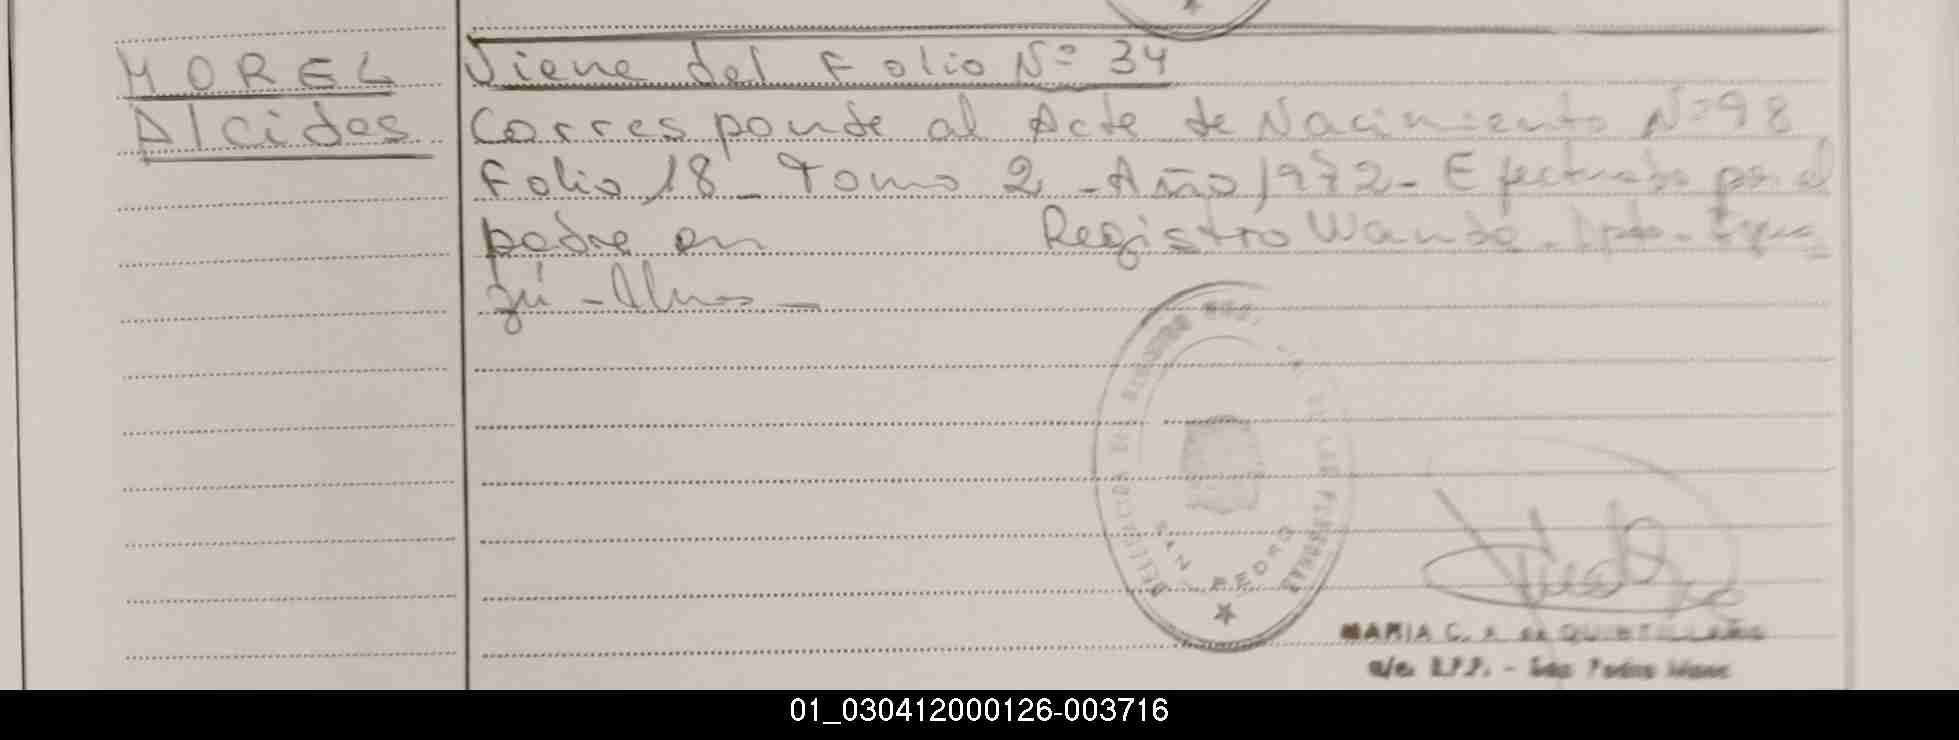 MOREL
Alcides
Viene del Folio Nº 34
Corresponde al Acta de Nacimiento Nº 98
Folio 18 - Tomo 2 - Año 1972 - Efectuada por el
padre en Registro Wanda - Dpto - Igua
zú - Mnes -
DELEGACION DEL REGISTRO PROV. DE LAS PERSONAS
SAN PEDRO
MARIA C. A. de QUINTILLANO
a/c. R.P.P. - San Pedro Mnes
01_030412000126-003716